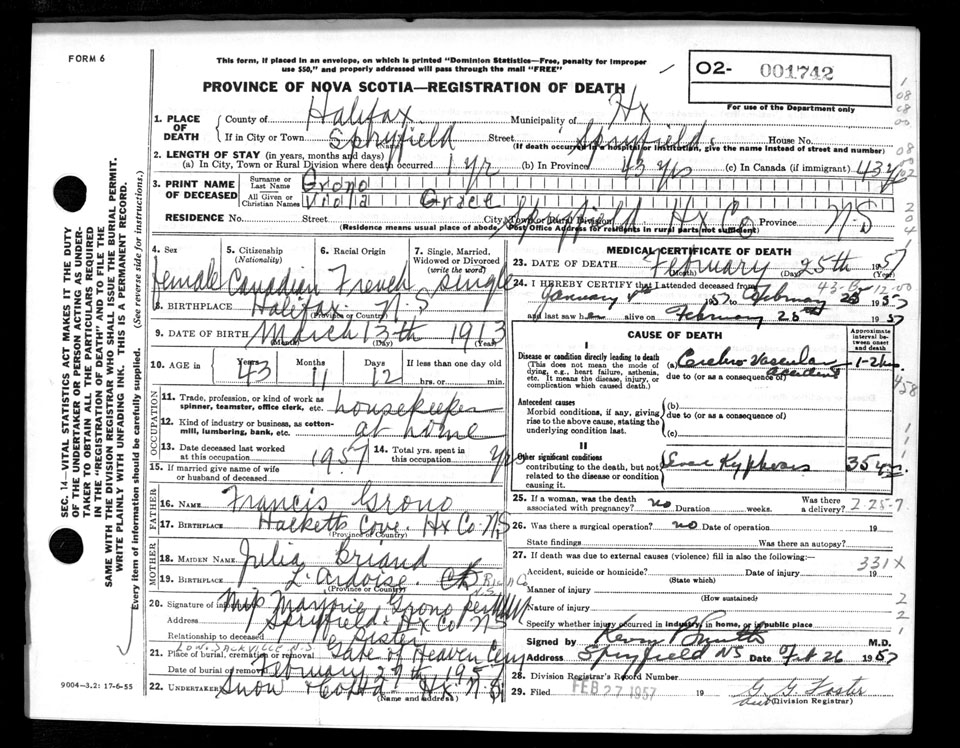 FORM 6
This form, if placed in an envelope, on which is printed "Dominion Statistics—Free, penalty for improper
use $50," and properly addressed will pass through the mail "FREE"
O2- 001742
For use of the Department only
PROVINCE OF NOVA SCOTIA—REGISTRATION OF DEATH
1. PLACE OF DEATH County of Halifax Municipality of Hx
If in City or Town Spryfield Street Spryfield House No.
(Name) (If death occurred in a hospital or institution, give the name instead of street and number)
2. LENGTH OF STAY (in years, months and days)
(a) In City, Town or Rural Division where death occurred 1 yr (b) In Province 43 yrs (c) In Canada (if immigrant) 43 y
3. PRINT NAME OF DECEASED Surname or Last Name Grono
All Given or Christian Names Viola Grace
RESIDENCE No. Street City, Town or Rural Division Spryfield Hx Co Province N.S
(Residence means usual place of abode. Post Office Address for residents in rural parts not sufficient)
4. Sex 5. Citizenship (Nationality) 6. Racial Origin 7. Single, Married, Widowed or Divorced (write the word)
female Canadian French single
8. BIRTHPLACE Halifax N.S
(Province or Country)
9. DATE OF BIRTH March 13th 1913
(Month) (Day) (Year)
10. AGE in Years 43 Months 11 Days 12 If less than one day old hrs. or min.
OCCUPATION
11. Trade, profession, or kind of work as spinner, teamster, office clerk, etc. housekeeper
12. Kind of industry or business, as cotton-mill, lumbering, bank, etc. at home
13. Date deceased last worked at this occupation 1957 14. Total yrs. spent in this occupation yrs
15. If married give name of wife or husband of deceased
FATHER
16. NAME Francis Grono
17. BIRTHPLACE Hacketts Cove. Hx Co. NS
(Province or Country)
MOTHER
18. MAIDEN NAME Julia Briand
19. BIRTHPLACE L'Ardoise. CB Rich Co N.S.
(Province or Country)
20. Signature of informant Miss Marjorie Grono
Address Spryfield. Hx Co NS
Relationship to deceased Sister
21. Place of burial, cremation or removal SACKVILLE N.S. Gate of Heaven Cem
Date of burial or removal February 27th 1957
22. UNDERTAKER Snow Hx N.S
(Name and address)
MEDICAL CERTIFICATE OF DEATH
23. DATE OF DEATH February 25th 1957
(Month) (Day)
43-B-12-00
24. I HEREBY CERTIFY that I attended deceased from
January 1957 to February 25 1957
and last saw her alive on February 25th 1957
CAUSE OF DEATH
Approximate interval between onset and death
I
Disease or condition directly leading to death
(This does not mean the mode of dying, e.g., heart failure, asthenia, etc. It means the disease, injury, or complication which caused death.)
(a) Cerebro Vascular accident 1-2 hrs.
due to (or as a consequence of)
Antecedent causes
Morbid conditions, if any, giving rise to the above cause, stating the underlying condition last.
(b)
due to (or as a consequence of)
(c)
II
Other significant conditions
contributing to the death, but not related to the disease or condition causing it.
Kyphosis 35 yrs.
25. If a woman, was the death associated with pregnancy? no Duration weeks. Was there a delivery? 2-25-7
26. Was there a surgical operation? no Date of operation 19
State findings Was there an autopsy?
27. If death was due to external causes (violence) fill in also the following:— 331X
Accident, suicide or homicide? Date of injury 19
(State which)
Manner of injury
(How sustained)
Nature of injury
Specify whether injury occurred in industry, in home, or in public place
Signed by M.D.
Address Spryfield NS Date Feb 26 1957
28. Division Registrar's Record Number
29. Filed FEB 27 1957 19 G. G. Foster
(Division Registrar)
9004—3.2: 17-6-55
SEC. 14—VITAL STATISTICS ACT MAKES IT THE DUTY
OF THE UNDERTAKER OR PERSON ACTING AS UNDER-
TAKER TO OBTAIN ALL THE PARTICULARS REQUIRED
IN THE "REGISTRATION OF DEATH" AND TO FILE THE
SAME WITH THE DIVISION REGISTRAR WHO SHALL ISSUE THE BURIAL PERMIT.
WRITE PLAINLY WITH UNFADING INK. THIS IS A PERMANENT RECORD.
Every item of information should be carefully supplied. (See reverse side for instructions.)